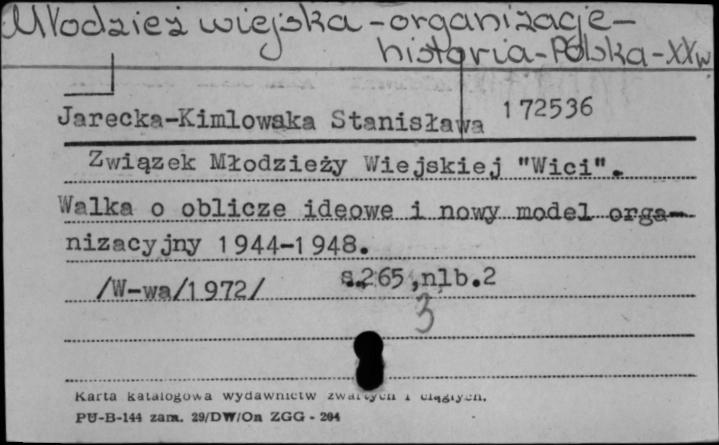 Młodzież wiejska - organizacje -
historia - Polska - XX w
Jarecka-Kimlowska Stanisława
172536
Związek Młodzieży Wiejskiej "Wici".
Walka o oblicze ideowe i nowy model orga-
nizacyjny 1944-1948.
/W-wa/1972/ s.265,nlb.2
3
Karta katalogowa wydawnictw zwartych i ciągłych.
PU-B-144 zam. 29/DW/On ZGG - 294